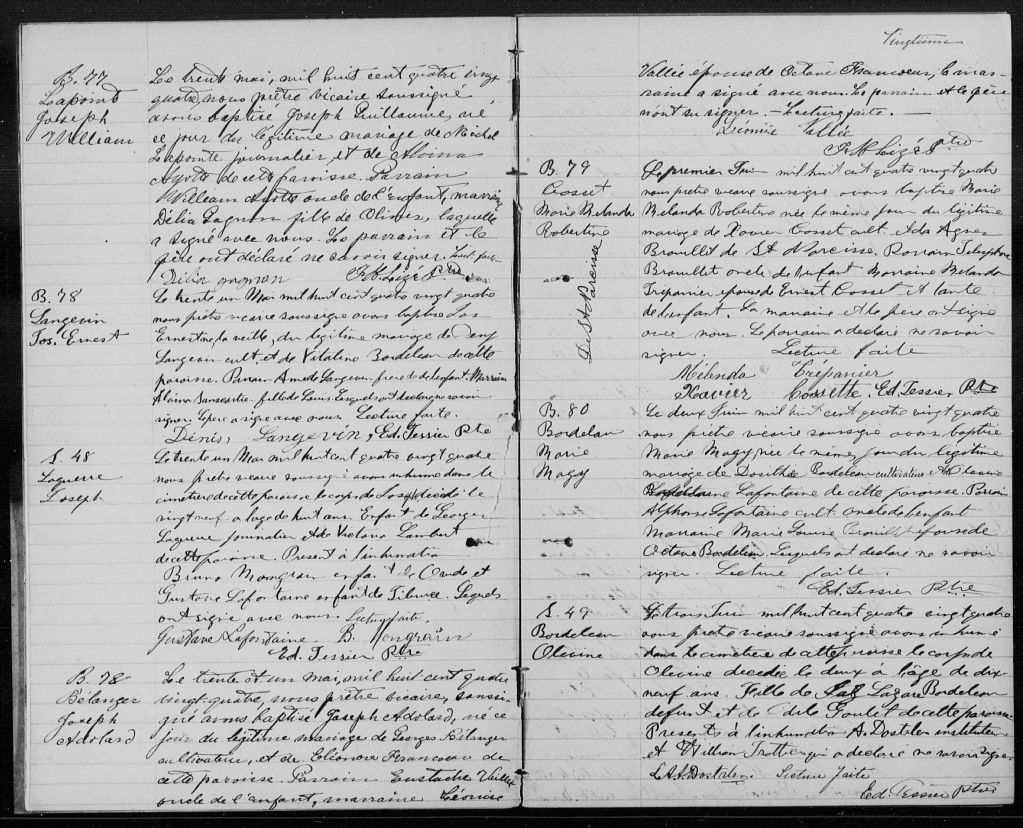 B. 77
Lapointe
Joseph
William
Le trente mai, mil huit cent quatre vingt
quatre, nous prêtre vicaire soussigné
avons baptisé Joseph Guillaume, né
ce jour du légitime mariage de Michel
Lapointe journalier, et de Alvina
Ayotte de cette paroisse. Parrain
William Ayotte oncle de l'enfant, marraine
Délia Gagnon fille de Olivier, laquelle
a signé avec nous. Le parrain et le
père ont déclaré ne savoir signer. Lect. faite
Délia gagnon
B. 78
Langevin
Jos. Ernest
Le trente un Mai mil huit cent quatre vingt quatre
nous prêtre vicaire soussigné avons baptisé Jos
Ernest né la veille, du légitime mariage de Denys
Langevin cult. et de Vitaline Bordeleau de cette
paroisse. Parrain Amédé Langevin frère de l'enfant. Marraine
fille de Louis. Lesquels ont déclaré ne savoir
signer. Le père a signé avec nous Lecture faite.
Dénis, Langevin, Ed. Tessier Ptre
S. 48
Laguerre
Joseph
Le trente un Mai mil huit cent quatre vingt quatre
nous prêtre vicaire soussigné avons inhumé dans le
cimetière de cette paroisse le corps de Joseph décédé le
vingt neuf a l'age de huit ans. Enfant de
Laguerre journalier et de Victoria Lambert
de cette paroisse. Présent à l'inhumation
Bruno Mongrain enfant de et
Gustave Lafontaine enfant de Tiburce. Lesquels
ont signé avec nous. Lecture faite.
Gustave Lafontaine B. Mongrain
Ed. Tessier Ptre
B. 78
Bélanger
Joseph
Adolard
Le trente et un mai, mil huit cent quatre
vingt-quatre, nous prêtre vicaire, soussi-
gné avons baptisé Joseph Adolard, né ce
jour du légitime mariage de Georges Bélanger
cultivateur, et de Eléonore Francoeur de
cette paroisse. Parrain Eustache Vallée
oncle de l'enfant, marraine Léonise
Vingtième
Vallée épouse de Octave Francoeur, la mar-
raine a signé avec nous. Le parrain et le père
n'ont su signer. - Lecture faite. -
Léonise Vallée
B. 79
Cosset
Marie Melanda
Robertine
De St Narcisse
Le premier Juin mil huit cent quatre vingt quatre
nous prêtre vicaire soussigné avons baptisé Marie
Melanda Robertine née le même jour du légitime
mariage de Xavier Cosset cult. et de Agnes
Brouillet de St Narcisse. Parrain Télesphore
Brouillet oncle de l'enfant Marraine Melanda
Trépanier épouse de Ernest Cosset et tante
de l'enfant. La marraine et le père ont signé
avec nous. Le parrain a déclaré ne savoir
signer. Lecture faite
Mélenda Trépanier
Xavier Cossette, Ed. Tessier Ptre
B. 80
Bordeleau
Marie
Magy
Le deux Juin mil huit cent quatre vingt quatre
nous prêtre vicaire soussigné avons baptisé
Marie Magy née le même jour du légitime
mariage de Dosithé Bordeleau cultivateur et de
Lafontaine de cette paroisse. Parrain
Alphonse Lafontaine cult. oncle de l'enfant
Marraine Marie Louise Brouillet épouse de
Octave Bordeleau. Lesquels ont déclaré ne savoir
signer. Lecture faite.
Ed. Tessier Ptre
S. 49
Bordeleau
Olivine
Le trois Juin mil huit cent quatre vingt quatre
nous prêtre vicaire soussigné avons inhumé
dans le cimetière de cette paroisse le corps de
Olivine décédée le deux à l'âge de dix
neuf ans. Fille de Lazare Bordeleau
défunt et de Goulet de cette paroisse
Présents à l'inhumation A. Dostaler instituteur
et William Trottier qui a déclaré ne savoir signer
Dostaler. Lecture faite
Ed. Tessier Ptre